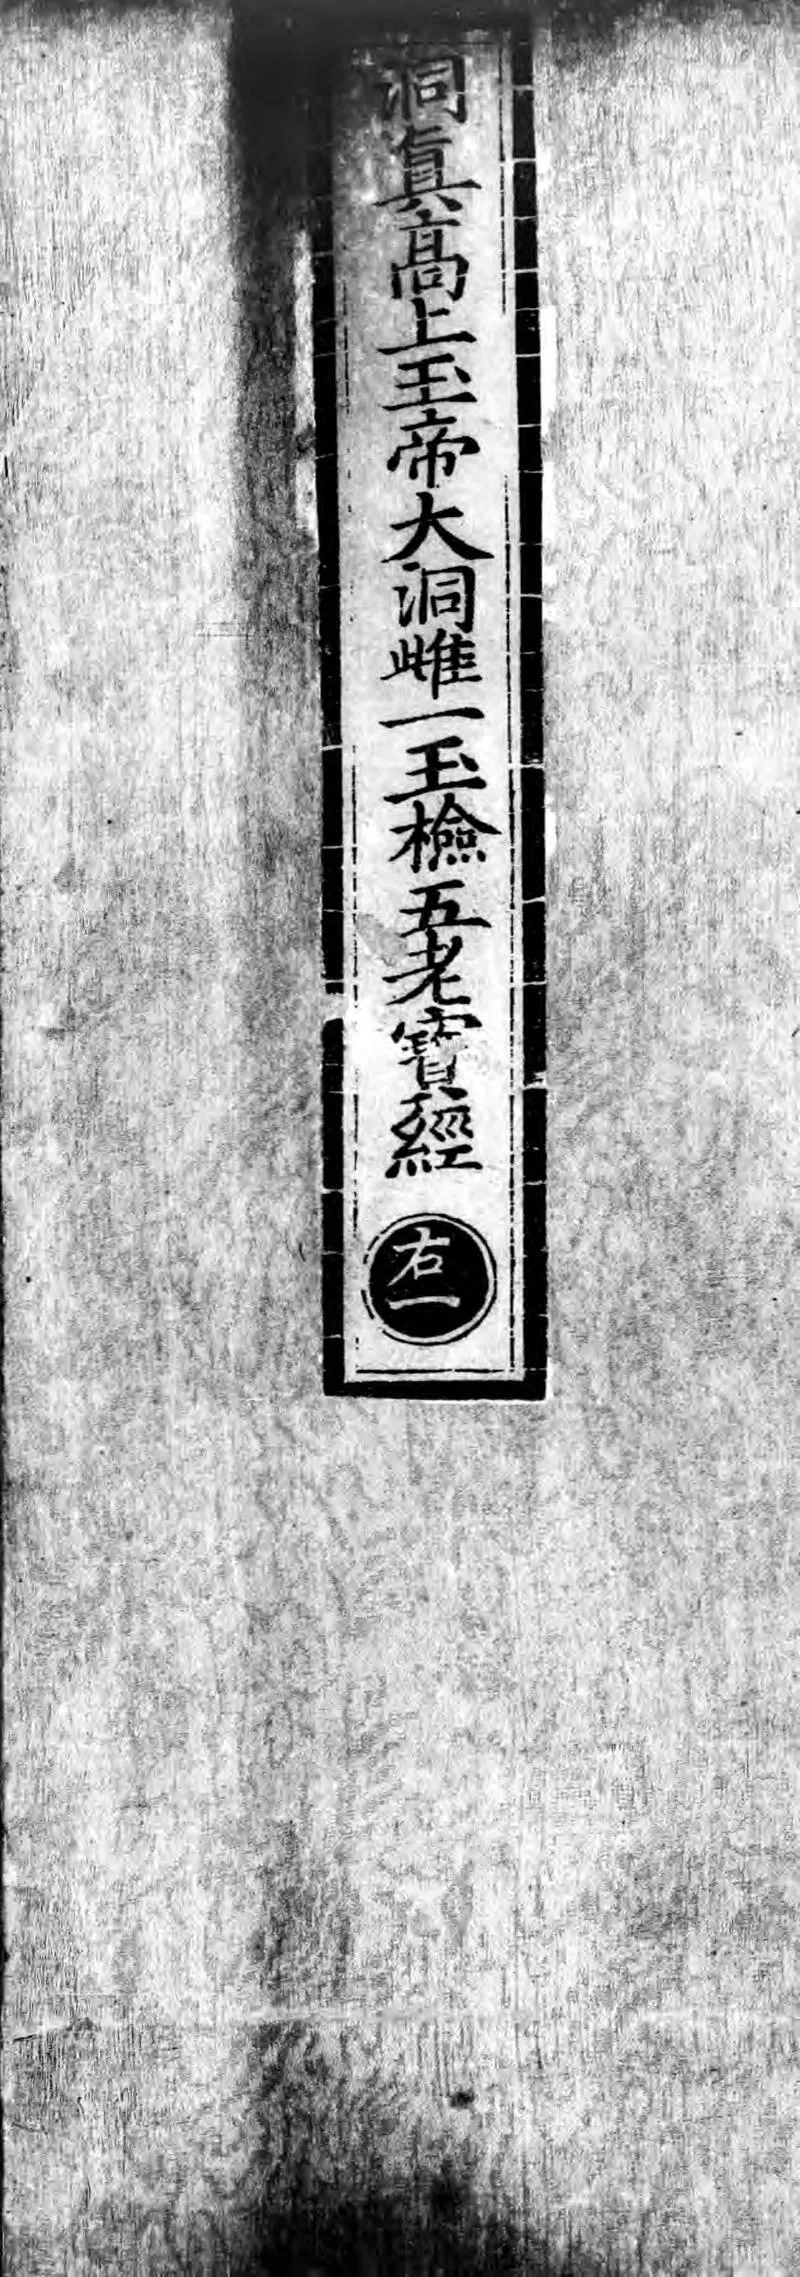 洞眞高上玉帝大洞雌一玉檢五老寶經
右一